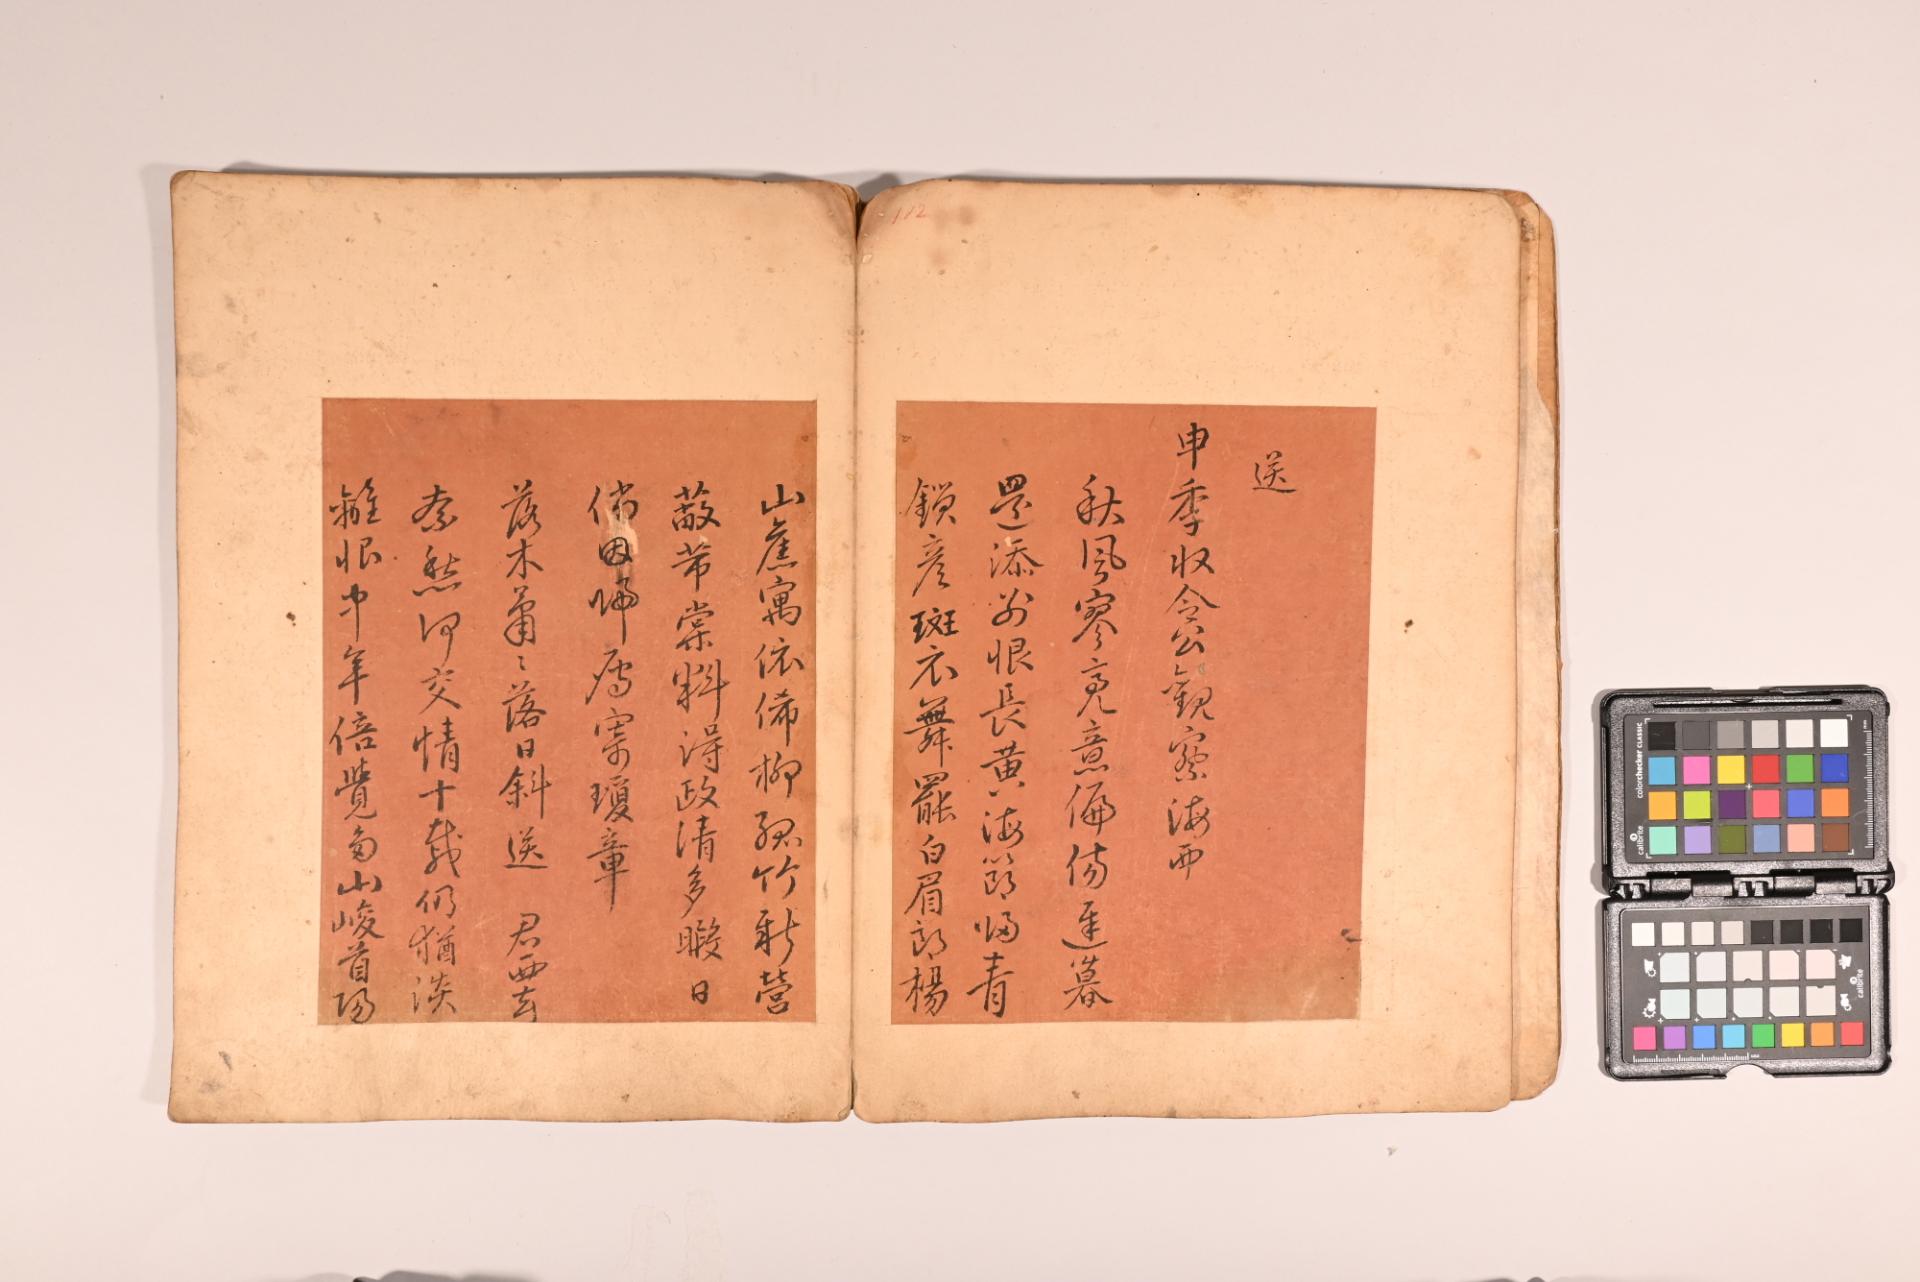 112
送
申季收令公觀察海西
秋風寥亮意偏傷遲暮
還添別恨長黃海節歸青
鎖彦斑衣舞罷白眉郎楊
山舊寓依俙柳孤竹新營
蔽芾棠料得政清多暇日
倘因歸鴈寄瓊章
落木蕭〻落日斜送 君西去
奈愁何交情十載仍猶淡
離恨中年倍覺多山峻首陽
colorchecker CLASSIC
calibrite
calibrite